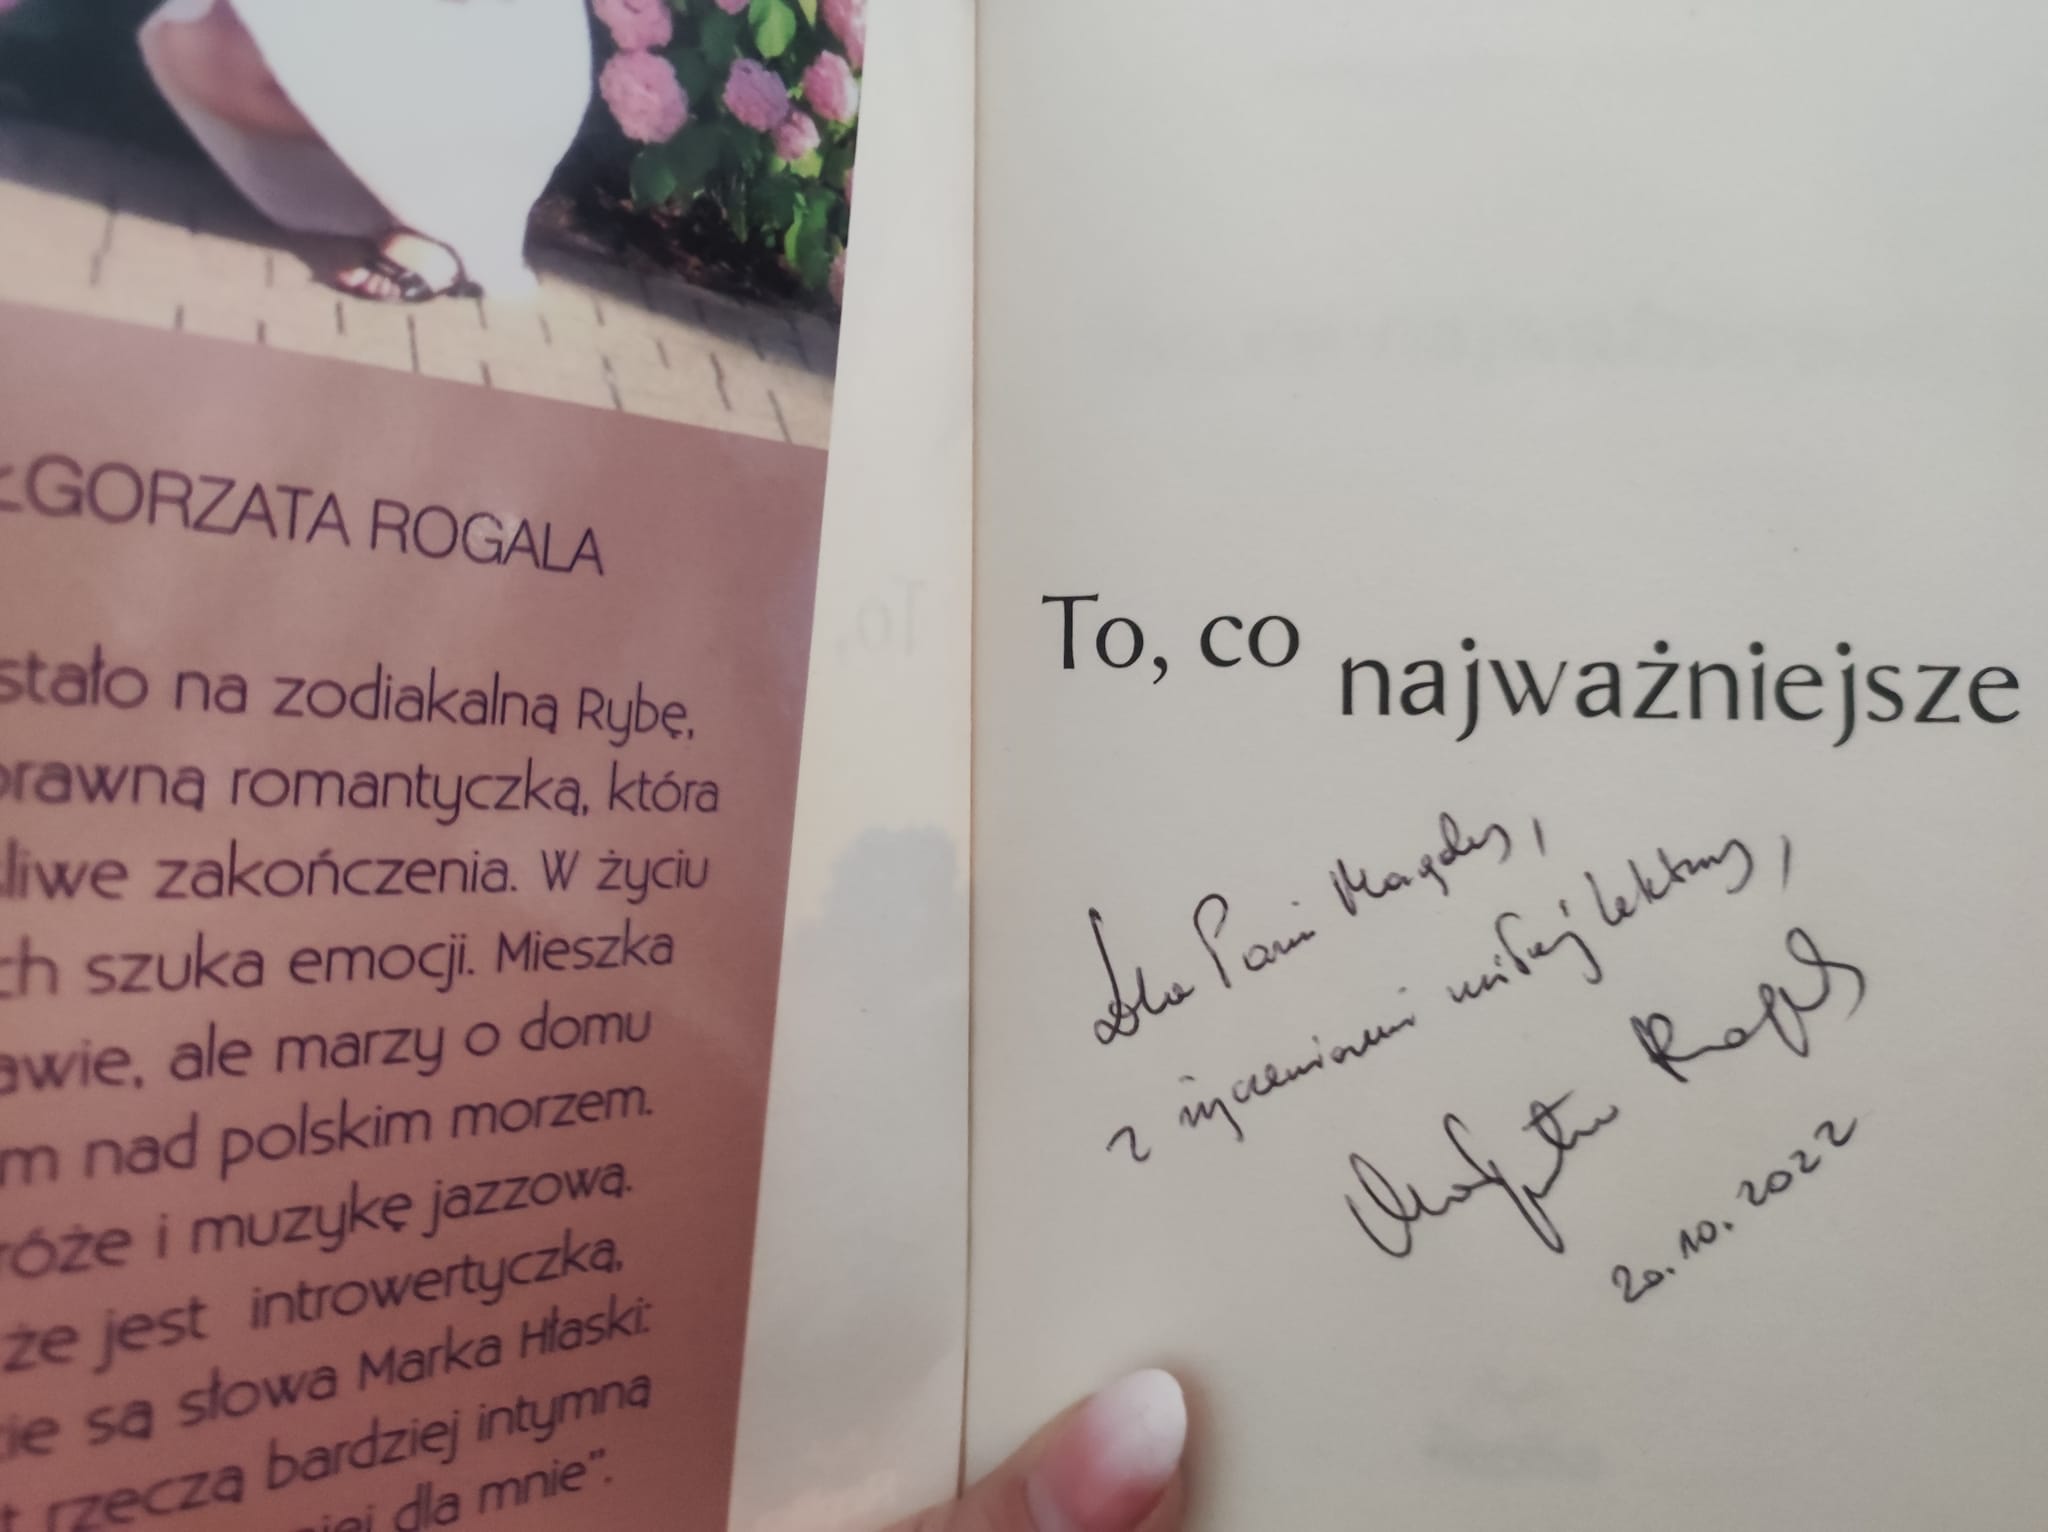 ŁGORZATA ROGALA
stało na zodiakalną Rybę,
prawną romantyczką, która
śliwe zakończenia. W życiu
ch szuka emocji. Mieszka
awie, ale marzy o domu
m nad polskim morzem.
róże i muzykę jazzową.
że jest introwertyczką,
ie są słowa Marka Hłaski:
t rzeczą bardziej intymną
niej dla mnie".
To, co najważniejsze
Dla Pani Magdy,
z życzeniami miłej lektury,
Małgorzata Rogala
20.10.2022